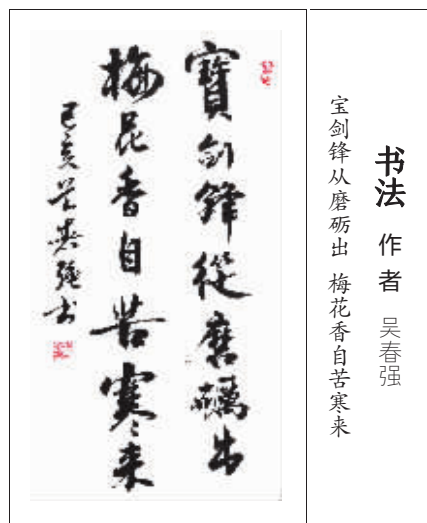 书法 作者 吴春强
宝剑锋从磨砺出 梅花香自苦寒来
寶剑鋒從磨礪出
梅花香自苦寒来
己亥吴春强书